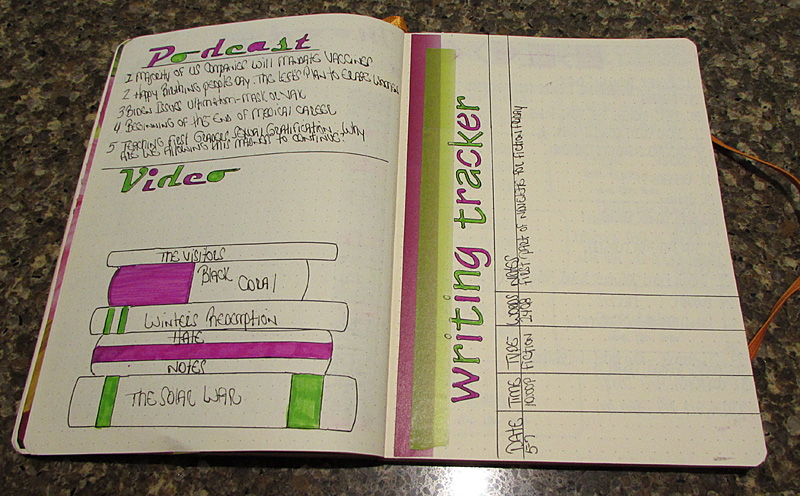 Podcast
1 Majority of US Companies will Mandate Vaccines
2 Happy Birthing People Day. The Left's Plan to Erase Women
3 Biden Issues Ultimatum - Mask or Vax
4 Beginning of the End of Medical Career
5 Teaching First Graders Sexual Gratification. Why
are we allowing this madness to continue?
Video
The Visitors
Black Coral
Winter's Redemption
Hate
Notes
The Solar War
writing tracker
Date Time Type Words Notes
5-7 1000p Fiction First part of Novelette for Fiction Friday